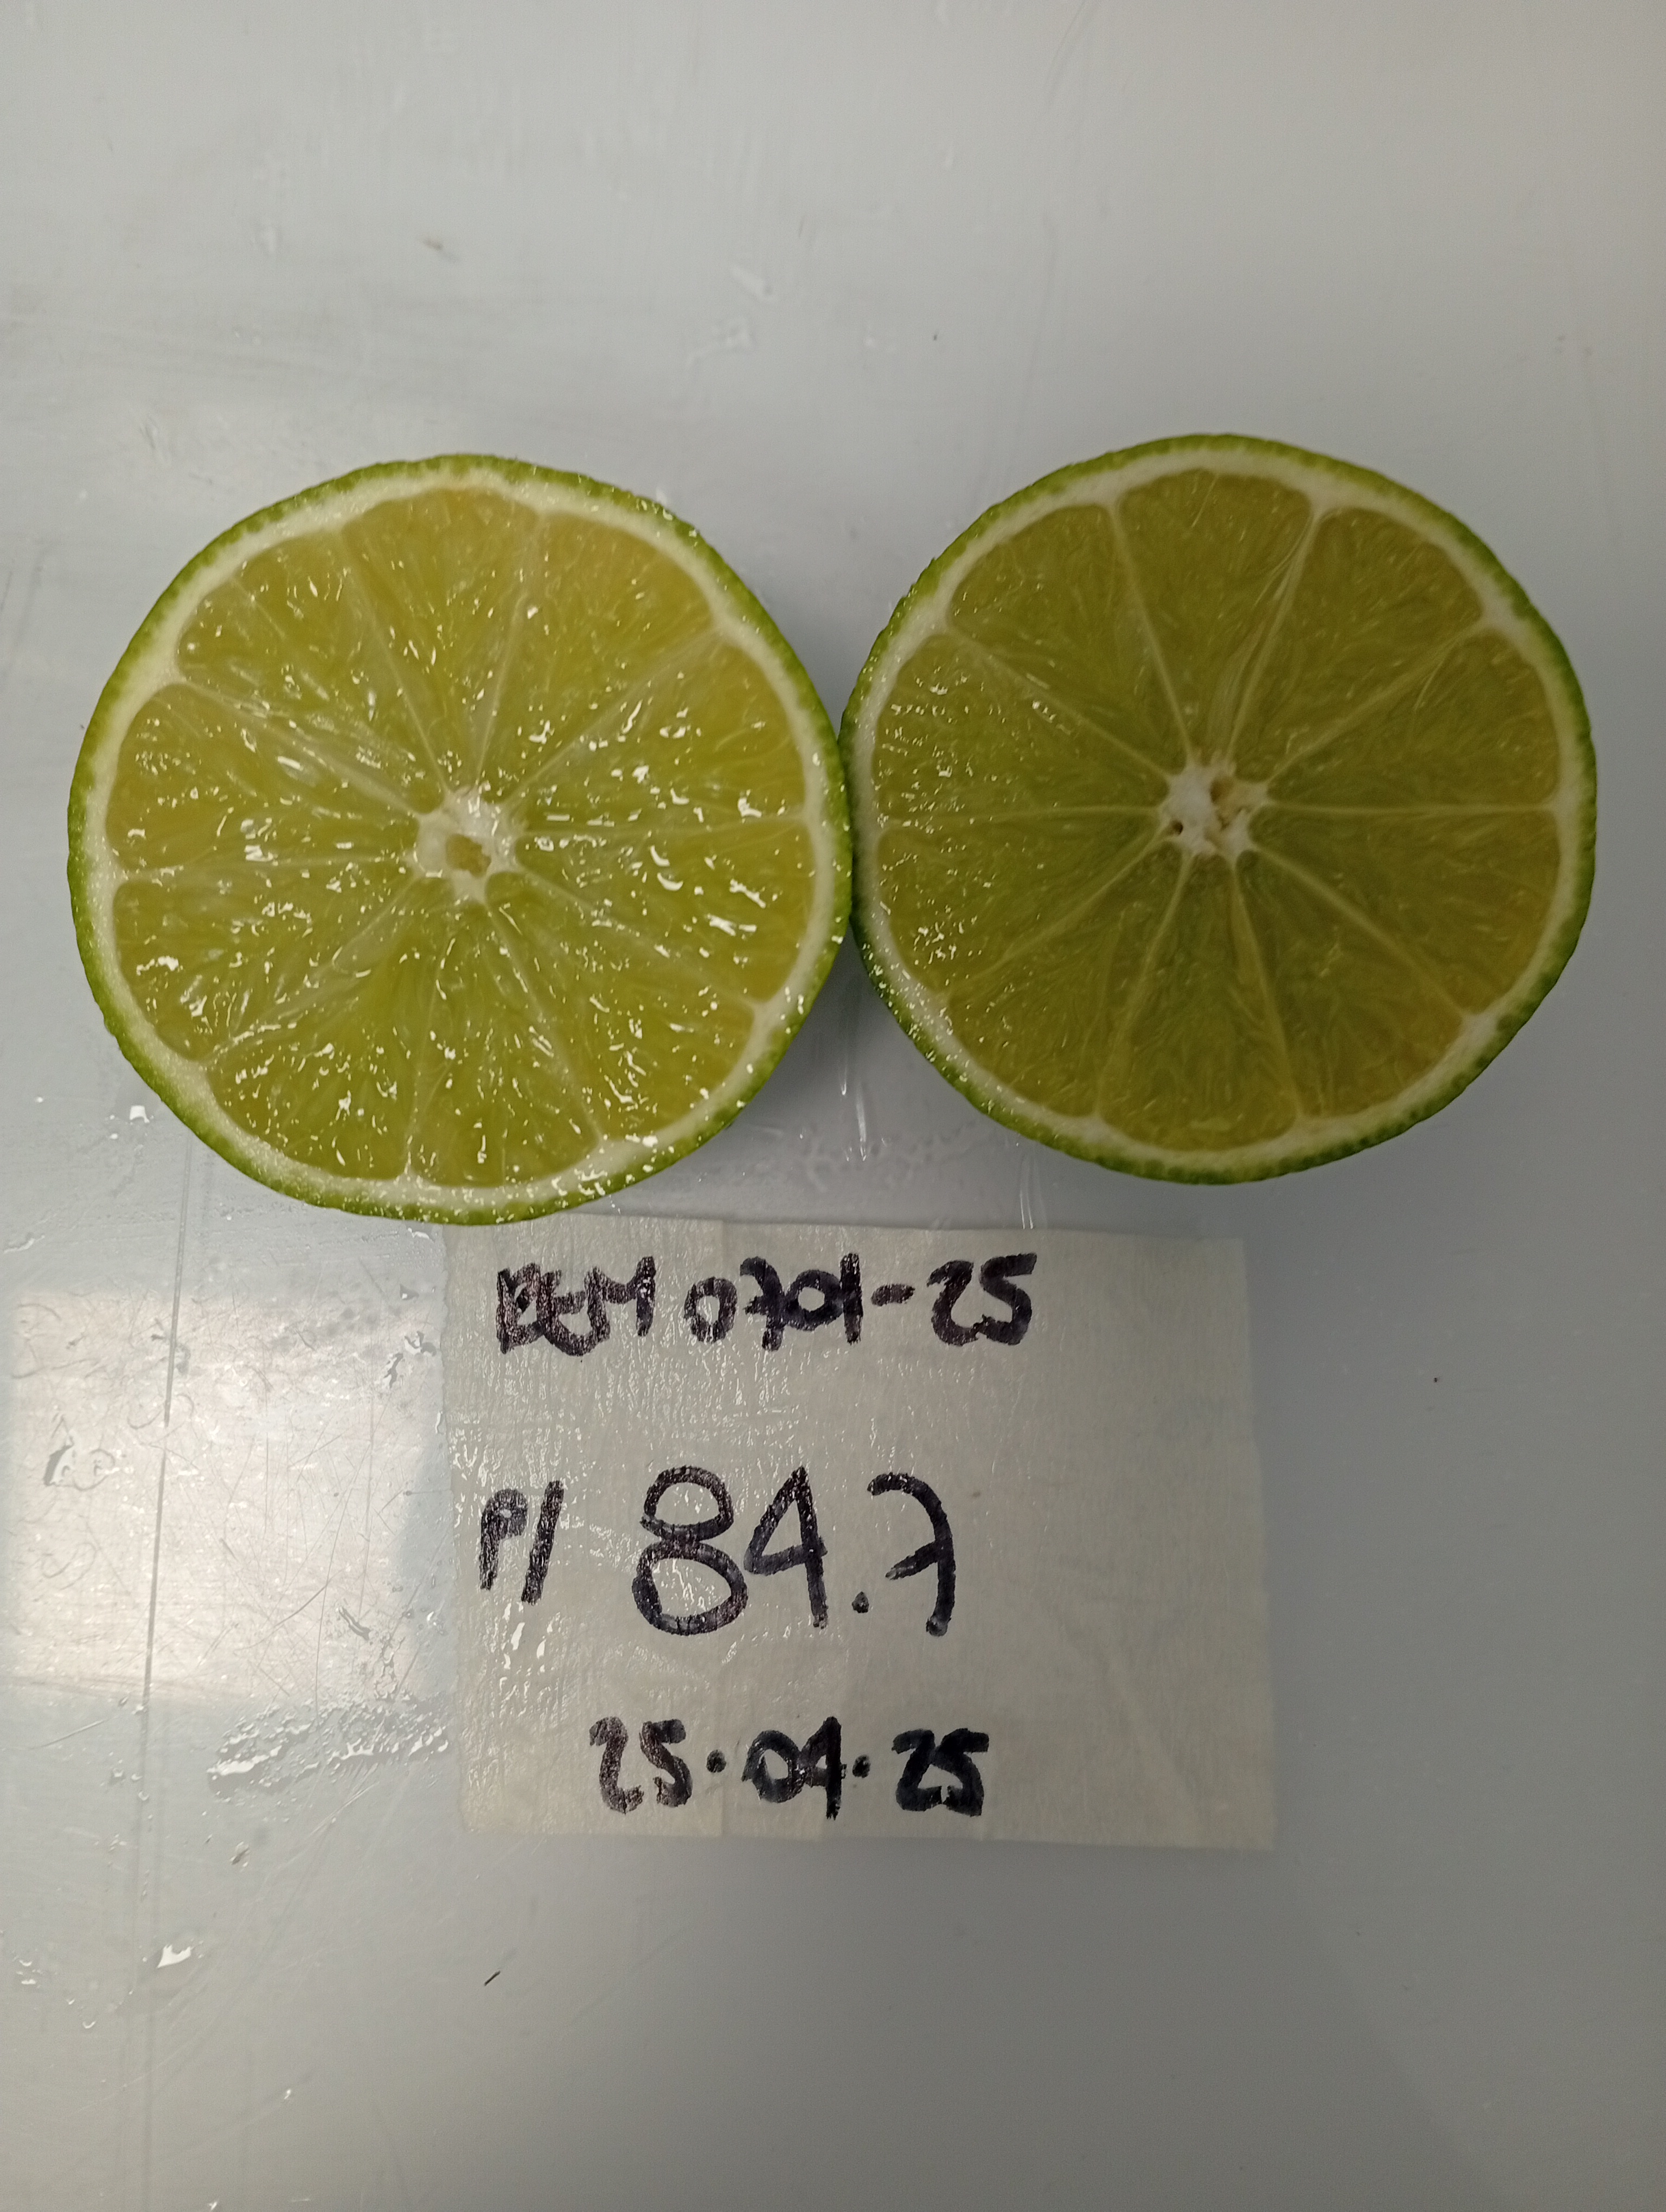 0701-25
P/ 84.7
25.04.25